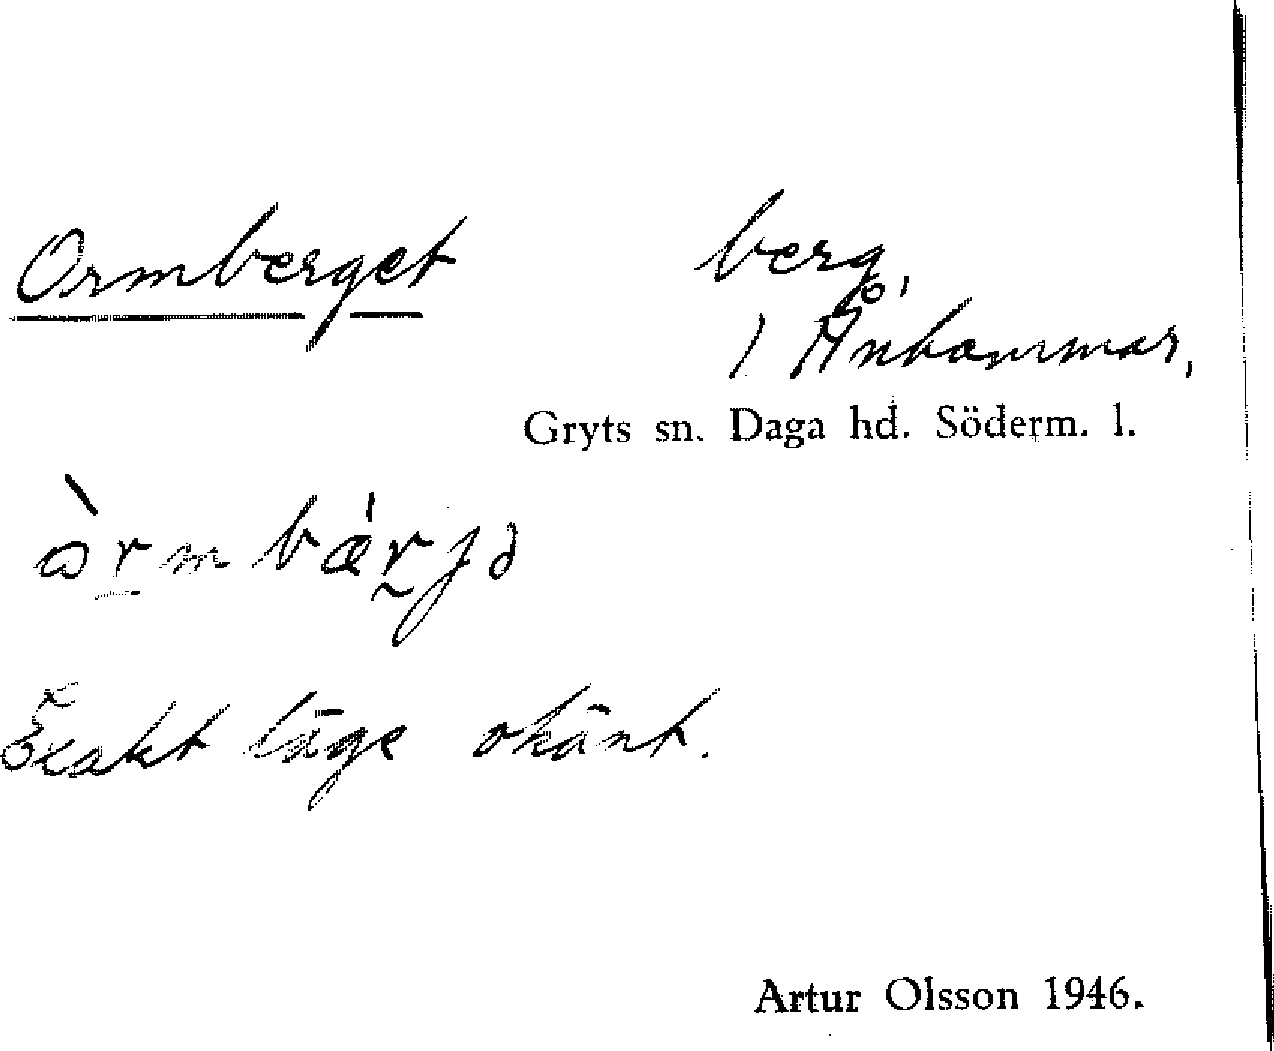 Ormberget berg,
/ Ånhammar,
Gryts sn. Daga hd. Söderm. l.
Exakt läge okänt.
Artur Olsson 1946.